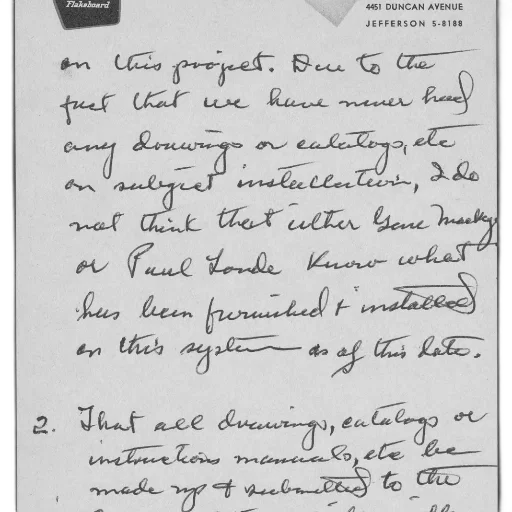 Flakeboard
4451 DUNCAN AVENUE
JEFFERSON 5-8188
on this project. Due to the
fact that we have never had
any drawings or catalogs, etc
on subject installation, I do
not think that either Gene
or Paul Londe know what
has been furnished & installed
on this system as of this date.
2. That all drawings, catalogs or
instructions manuals, etc be
made up & submitted to the